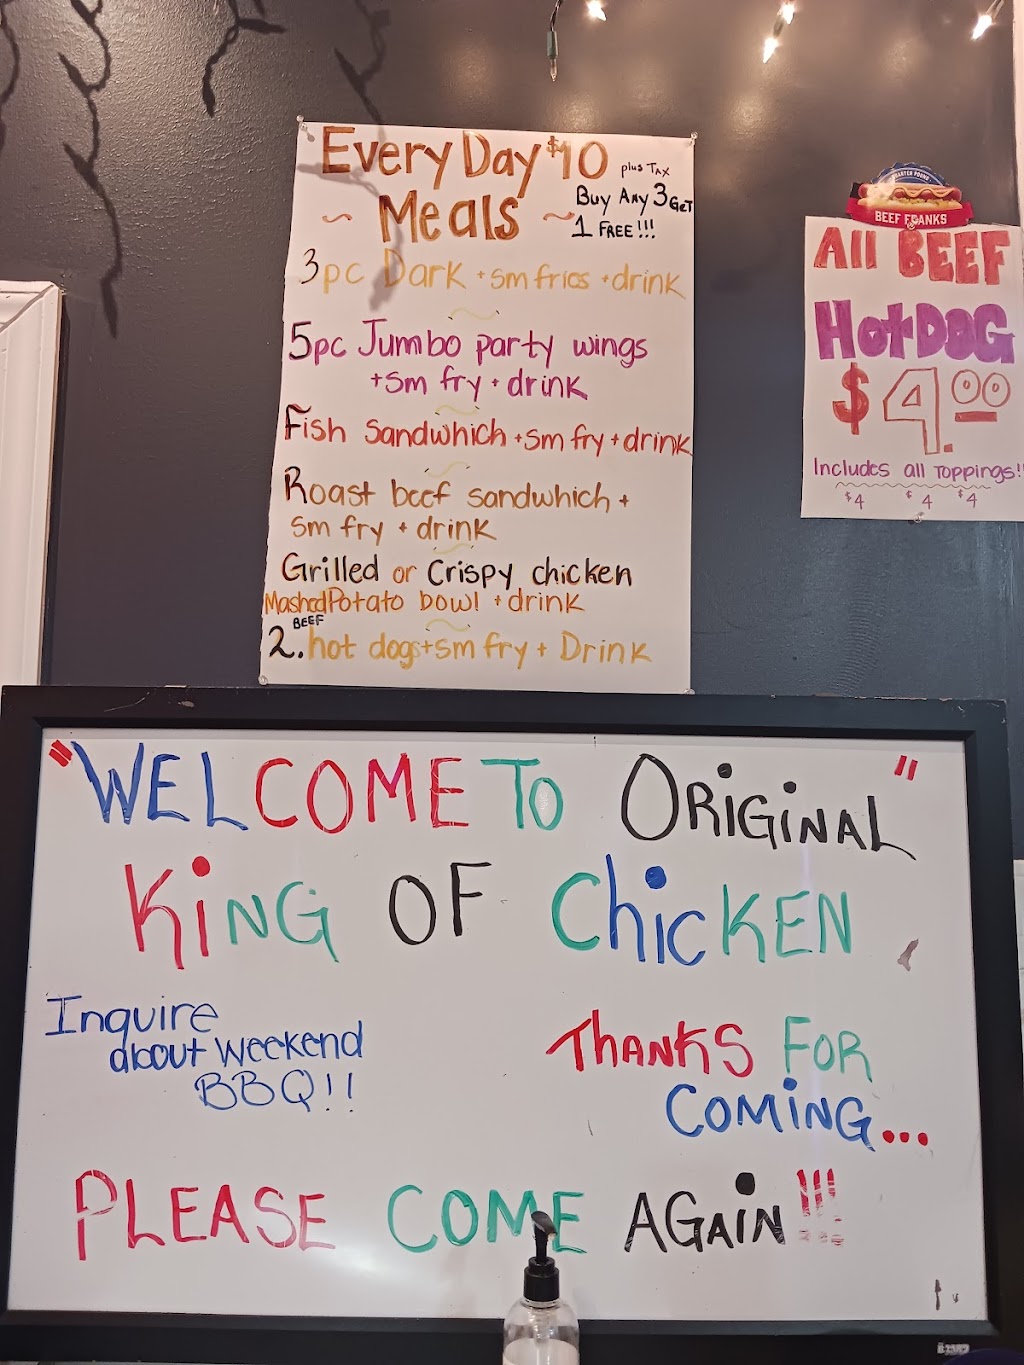 Every Day $10 plus TAX
~ Meals ~ Buy Any 3 Get
1 FREE!!!
3pc Dark + sm fries + drink
5pc Jumbo party wings
+ sm fry + drink
Fish sandwhich + sm fry + drink
Roast beef sandwhich +
sm fry + drink
Grilled or Crispy chicken
Mashed Potato bowl + drink
BEEF
2. hot dogs + sm fry + Drink
BEEF FRANKS
All BEEF
HotDOG
$4.00
Includes all Toppings!!
$4 $4 $4
"WELCOME TO ORIGINAL"
KiNG OF ChicKEN
Inquire
about weekend
BBQ!!
THANKS FOR
COMiNG...
PLEASE COME AGAiN!!!